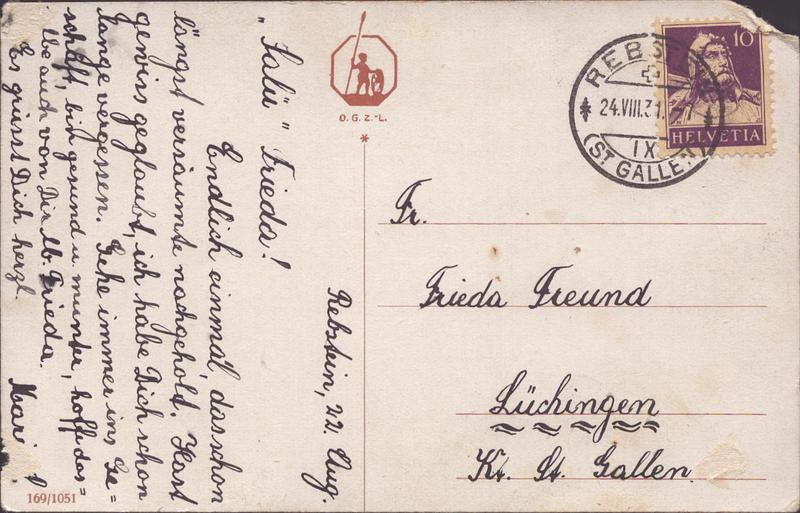 Rebstein, 22. Aug.
"Salü" Frieda!
Endlich einmal, das schon
längst versäumte nachgeholt. Hast
gewiss geglaubt, ich habe Dich schon
lange vergessen. Gehe immer ins Ge=
schäft, bin gesund u. munter, hoffe das=
lbe auch von Dir lb. Frieda.
Es grüsst Dich herzl.
O. G. Z.-L.
169/1051
REBST
24.VIII.31
IX
(ST GALLEN)
10
HELVETIA
Fr.
Frieda Freund
Lüchingen
Kt. St. Gallen.